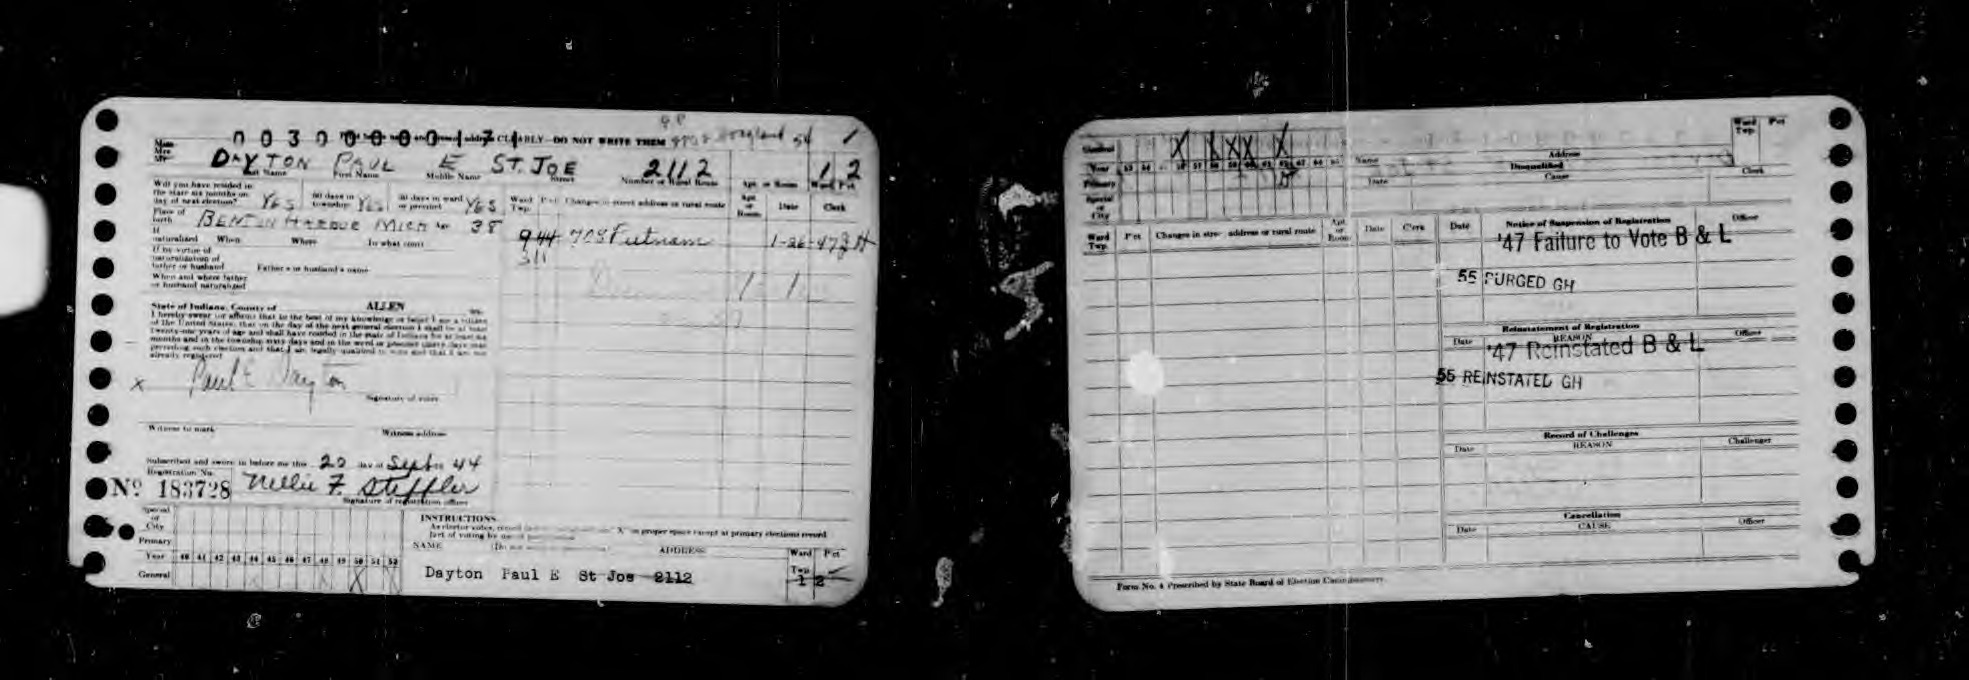 0030000017 CLEARLY—DO NOT WRITE THEM Hoagland 54 1
Mrs. DAYTON PAUL E ST. JOE 2112 1 2
Last Name First Name Middle Name Street Number or Rural Route Apt. or Room Ward Pct
Will you have resided in the state six months on day of next election? YES 60 days in township YES 30 days in ward or precinct YES
Ward Twp. Pct Changes in street address or rural route Apt. or Room Date Clerk
Place of birth BENTON HARBOR MICH Age 38
944 708 Putnam 1-26-47
311
If naturalized When Where In what court
If by virtue of naturalization of father or husband Father's or husband's name
When and where father or husband naturalized
State of Indiana, County of ALLEN ss:
I hereby swear (or affirm) that to the best of my knowledge or belief I am a citizen
of the United States; that on the day of the next general election I shall be at least
twenty-one years of age and shall have resided in the state of Indiana for at least six
months and in the township sixty days and in the ward or precinct thirty days next
preceding such election and that I am legally qualified to vote and that I am not
already registered
X Paul E Dayton
Signature of voter
Witness to mark Witness address
Subscribed and sworn to before me this 20 day of Sept 44
Registration No.
No 183728 Nellie F. Steffler
Signature of registration officer
Special or City
Primary
Year 40 41 42 43 44 45 46 47 48 49 50 51 52
General X
INSTRUCTIONS
As elector votes, record "X" in proper space except at primary elections record
fact of voting by
NAME ADDRESS Ward Twp. Pct
Dayton Paul E St Joe 2112 1 2
General X X X X X
Year 53 54 56 57 58 59 60 61 62 63 64 65
Primary
Special or City
Name Address Ward Twp. Pct
Disqualified
Date Cause Clerk
Ward Twp. Pct Changes in street address or rural route Apt. or Room Date Clerk
Date Notice of Suspension of Registration Officer
'47 Failure to Vote B & L
55 PURGED GH
Reinstatement of Registration
Date REASON Officer
'47 Reinstated B & L
55 REINSTATED GH
Record of Challenges
Date REASON Challenger
Cancellation
Date CAUSE Officer
Form No. 4 Prescribed by State Board of Election Commissioners